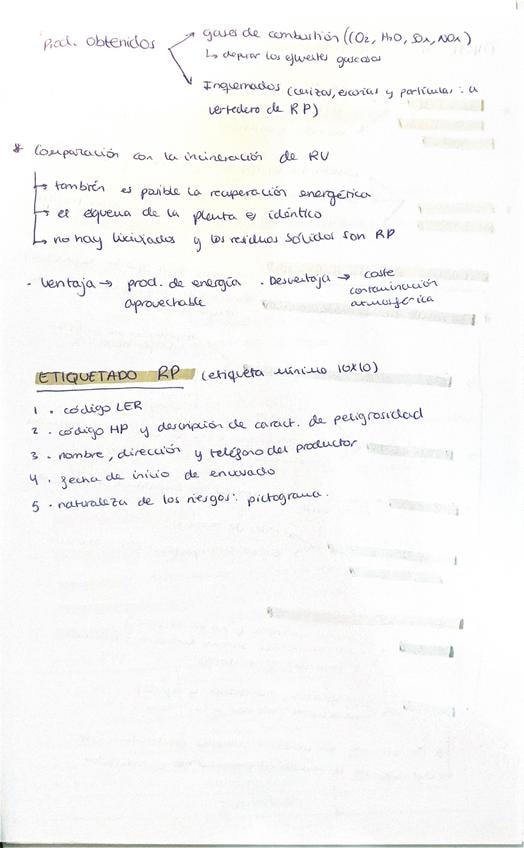 Prod. obtenidos → gases de combustión (CO2, H2O, SOx, NOx)
↳ depurar los efluentes gaseosos
→ Inquemados (cenizas, escorias y partículas: a
vertedero de RP)
* Comparación con la incineración de RU
→ también es posible la recuperación energética
→ el esquema de la planta es idéntico
→ no hay lixiviados y los residuos sólidos son RP
· Ventaja → prod. de energía aprovechable
· Desventaja → coste
contaminación
atmosférica
ETIQUETADO RP (etiqueta mínimo 10x10)
1 . código LER
2 . código HP y descripción de caract. de peligrosidad
3 . nombre, dirección y teléfono del productor
4 . fecha de inicio de envasado
5 . naturaleza de los riesgos: pictograma.